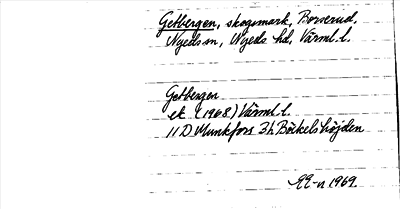 Getbergen, skogsmark, Borserud,
Nyeds sn, Nyeds hd, Värml. l.
Getbergen
ek (1968) Värml. l.
11 D Munkfors 3h Böckelshöjden
1969.